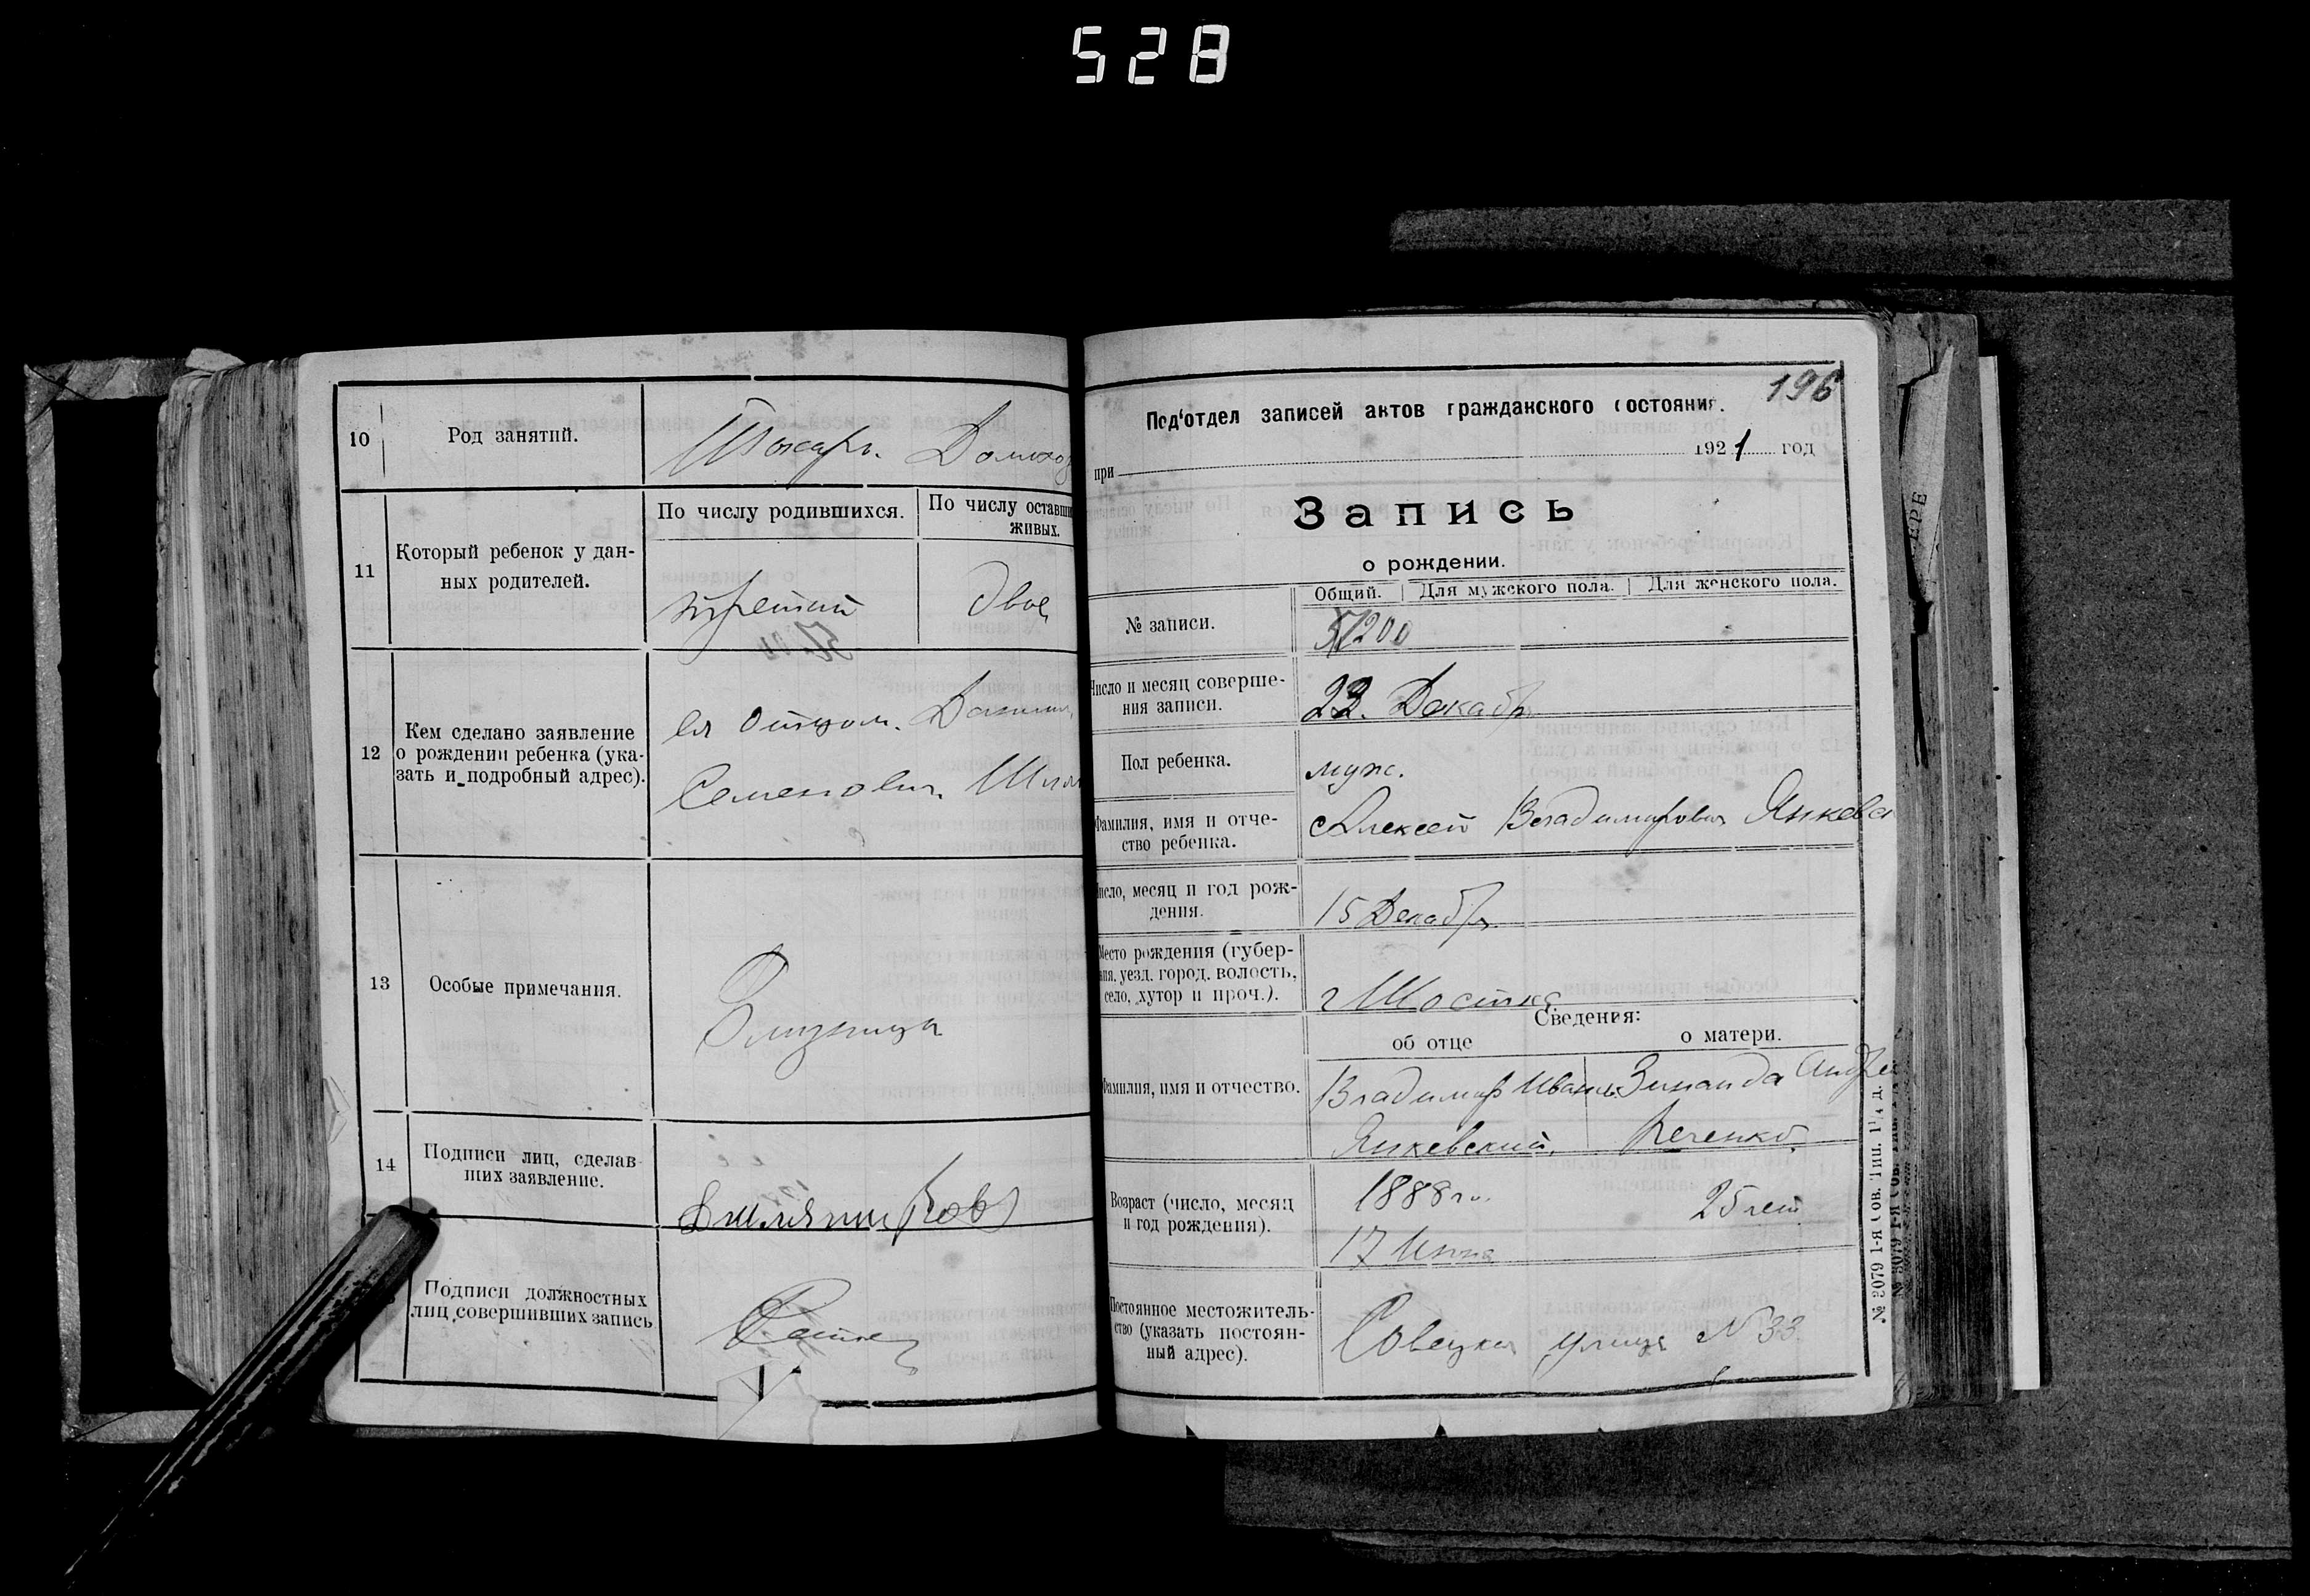 528
10
Род занятий.
Токарь. Домохоз
11
Который ребенок у дан-
ных родителей.
По числу родившихся.
По числу оставши
живых.
третий
двое
12
Кем сделано заявление
о рождении ребенка (ука-
зать и подробный адрес).
Отцом.
Семенович
13
Особые примечания.
Близнецы
14
Подписи лиц, сделав-
ших заявление.
Подписи должностных
лиц, совершивших запись
196
Под'отдел записей актов гражданского состояния.
при 1921 год
Запись
о рождении.
Общий. Для мужского пола. Для женского пола.
№ записи.
Число и месяц соверше-
ния записи.
Декабр
Пол ребенка.
муж.
Фамилия, имя и отче-
ство ребенка.
Алексей Владимирович Янкевс
исло, месяц и год рож-
дения.
15 Декабр
Место рождения (губер-
ния, уезд, город, волость,
село, хутор и проч.).
г Шостка
Сведения:
об отце
о матери.
Фамилия, имя и отчество.
Владимир Иванов
Янкевский.
Зинаида Андре
Возраст (число, месяц
и год рождения).
1888 г.
17
25 лет
Постоянное местожитель-
ство (указать постоян-
ный адрес).
Совецкая улица № 33.
№ 3079 1-я Сов. Тип.